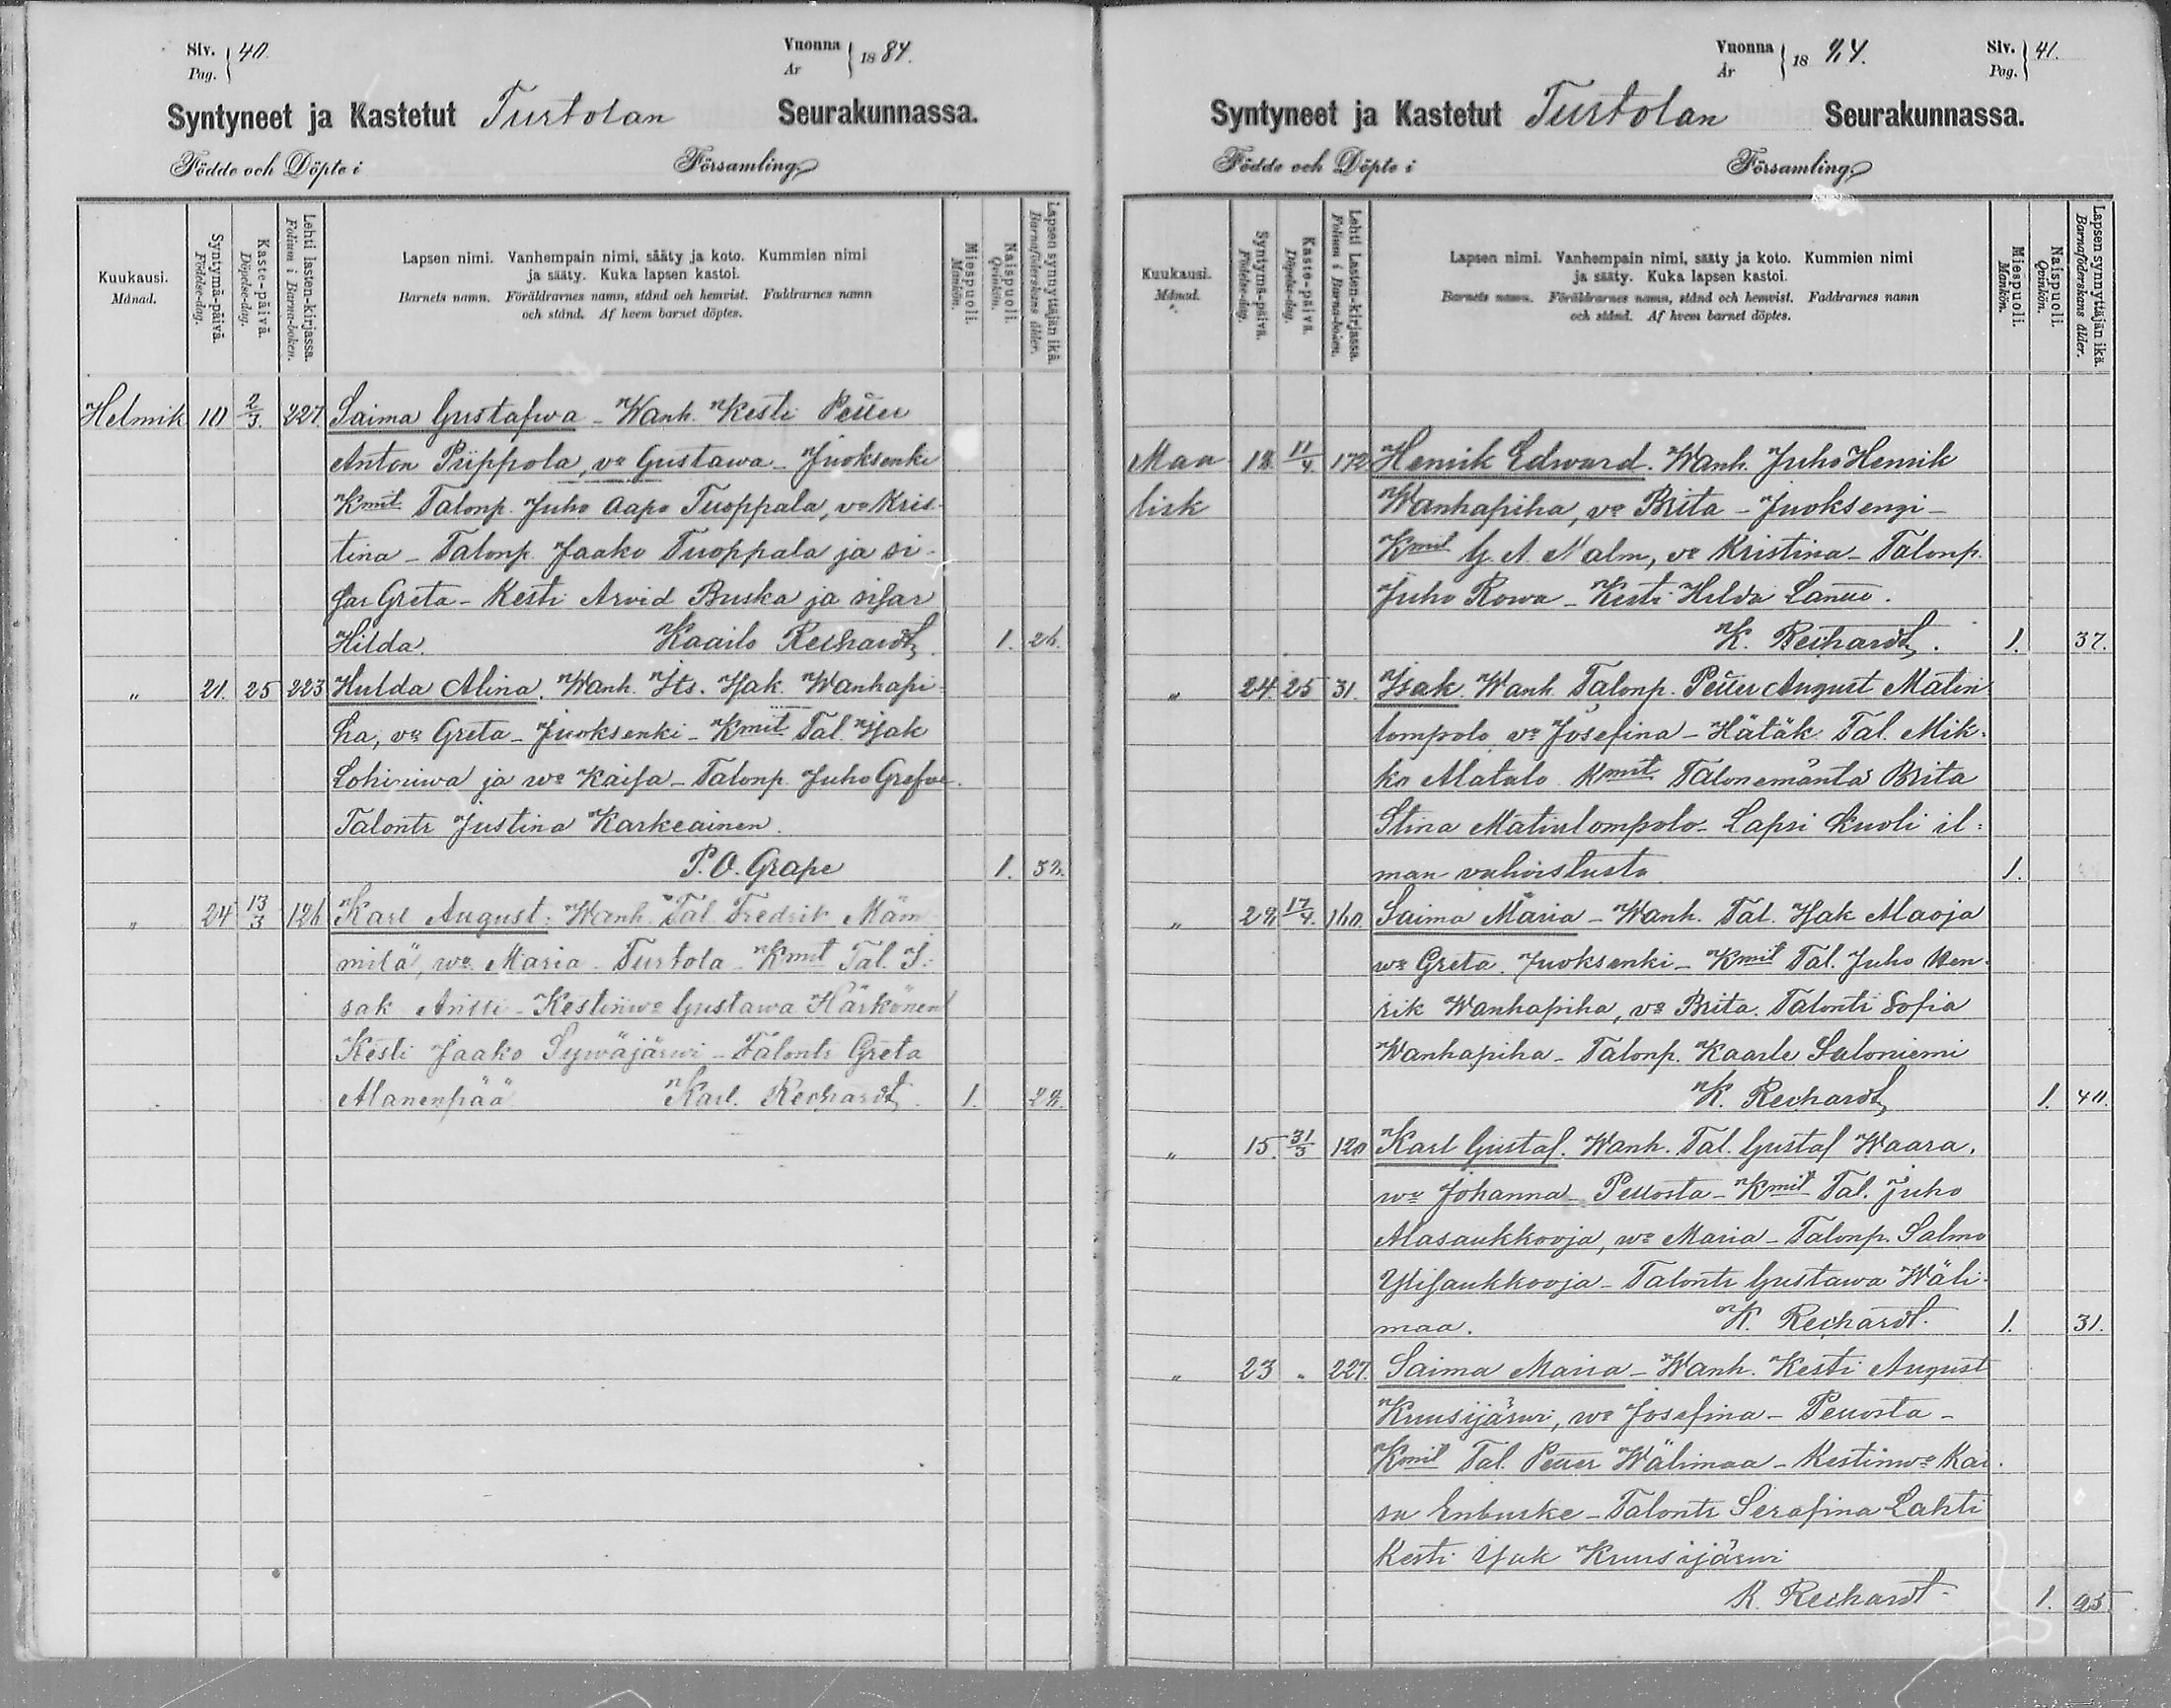 Siv. 40.
Pag.
Vuonna 1884.
År
Syntyneet ja Kastetut Turtolan Seurakunnassa.
Födde och Döpte i Församling
Kuukausi.
Månad.
Syntymä-päivä.
Födelse-dag.
Kaste-päivä.
Döpelse-dag.
Lehti lasten-kirjassa.
Folium i Barna-boken.
Lapsen nimi. Vanhempain nimi, sääty ja koto. Kummien nimi
ja sääty. Kuka lapsen kastoi.
Barnets namn. Föräldrarnes namn, stånd och hemvist. Faddrarnes namn
och stånd. Af hvem barnet döptes.
Miespuoli.
Mankön.
Naispuoli.
Qvinkön.
Lapsen synnyttäjän ikä.
Barnaföderskans ålder.
Helmik 10 2/3. 227. Saima Gustafwa - Wanh. Kesti Petter
Anton Piippola, vo Gustawa - Juoksenki
Kmit Talonp. Juho Aapo Tuoppala, vo Kris-
tina - Talonp. Jaako Tuoppala ja si-
sar Greta - Kesti Arvid Buska ja sisar
Hilda. Kaarlo Rechardt. 1. 26.
" 21. 25 223 Hulda Alina. Wanh. Its. Isak Wanhapi
ha, vo Greta - Juoksenki - Kmit Tal. Isak
Lohiniwa ja wo Kaisa - Talonp. Juho Grefve.
Talontr Justina Karkeainen.
P. O. Grape 1.
" 24 13/3 126 Karl August: Wanh. Tal. Fredrik Mäm
milä, wo Maria - Turtola - Kmit Tal. I-
sak Antti - Kestinwo Gustawa Härkönen
Kesti Jaako Sywäjärwi - Talontr Greta
Alanenpää Karl. Rechardt. 1. 28.
Vuonna 1884. Siv. 41.
År Pag.
Syntyneet ja Kastetut Turtolan Seurakunnassa.
Födde och Döpte i Församling
Kuukausi.
Månad.
Syntymä-päivä.
Födelse-dag.
Kaste-päivä.
Döpelse-dag.
Lehti Lasten-kirjassa.
Folium i Barna-boken.
Lapsen nimi. Vanhempain nimi, sääty ja koto. Kummien nimi
ja sääty. Kuka lapsen kastoi.
Barnets namn. Föräldrarnes namn, stånd och hemvist. Faddrarnes namn
och stånd. Af hvem barnet döptes.
Miespuoli.
Mankön.
Naispuoli.
Qvinkön.
Lapsen synnyttäjän ikä.
Barnaföderskans ålder.
Maa 18. 11/4. 172 Henrik Edward. Wanh. Juho Henrik
lisk Wanhapiha, vo Brita - Juoksengi -
Kmit G. A. Malm, vo Kristina - Talonp.
Juho Rowa - Kesti Hilda
K. Rechardt. 1. 37.
" 24. 25 31. Isak. Wanh. Talonp. Petter August Matin
lompolo vo Josefina - Hätäk. Tal. Mik-
ko Alatalo Kmit Talonemäntä Brita
Stina Matinlompolo - Lapsi kuoli il-
man vahvistusta 1.
" 28 17/4. 160. Saima Maria - Wanh. Tal. Isak Alaoja
wo Greta. Juoksenki - Kmit Tal. Juho Hen-
rik Wanhapiha, vo Brita. Talontr Sofia
Wanhapiha - Talonp. Kaarle Saloniemi
K. Rechardt 1. 40.
" 15. 31/3 120 Karl Gustaf. Wanh. Tal. Gustaf Waara.
wo Johanna - Pellosta - Kmit Tal. Juho
Alasaukkooja, wo Maria - Talonp. Salmo
Ylisaukkooja - Talontr Gustawa Wäli-
maa. K. Rechardt. 1. 31.
" 23 " 227. Saima Maria - Wanh. Kesti August
Kuusijärwi, wo Josefina - Pellosta -
Kmit Tal. Petter Wälimaa - Kestinwo Kai-
sa Enbuske - Talontr Serafina Lahti
Kesti Isak Kuusijärwi
K. Rechardt - 1. 25.